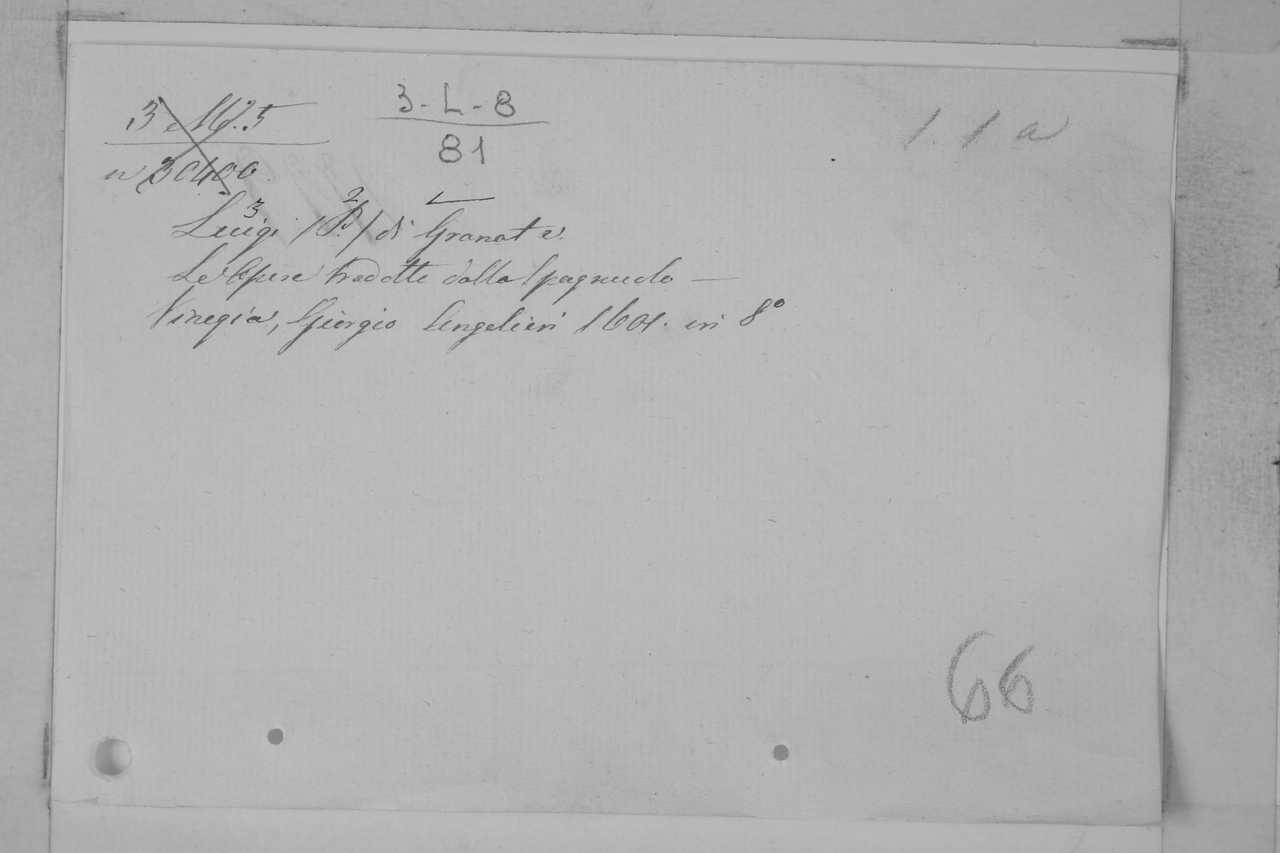 3-L-8
81
1.1 a
n 30400
3 2
Luigi (P.) di Granate.
Le Opere tradotte dallo Spagnuolo —
Vinegia, Giorgio Angelieri 1601. in 8°
66